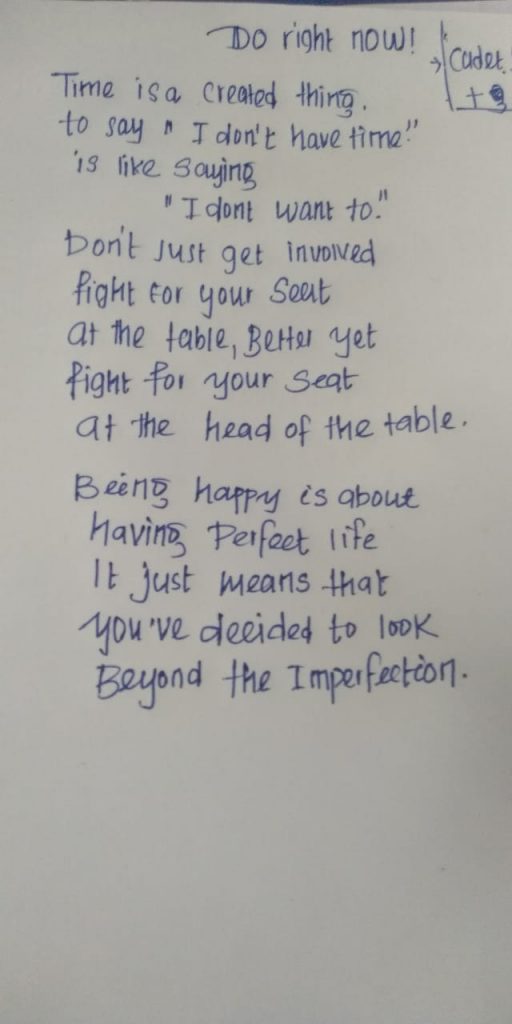 Do right now!
→ Cadet.
+
Time is a created thing.
to say " I don't have time"
is like saying
"I dont want to."
Don't just get involved
fight for your seat
at the table, Better yet
fight for your seat
at the head of the table.
Being happy is about
having Perfect life
It just means that
you've decided to look
Beyond the Imperfection.